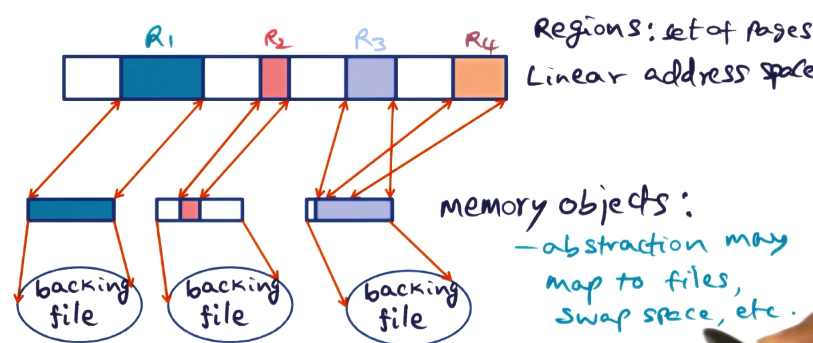 R1 R2 R3 R4
Regions: set of pages
Linear address space
memory objects:
- abstraction may
map to files,
swap space, etc.
backing
file
backing
file
backing
file